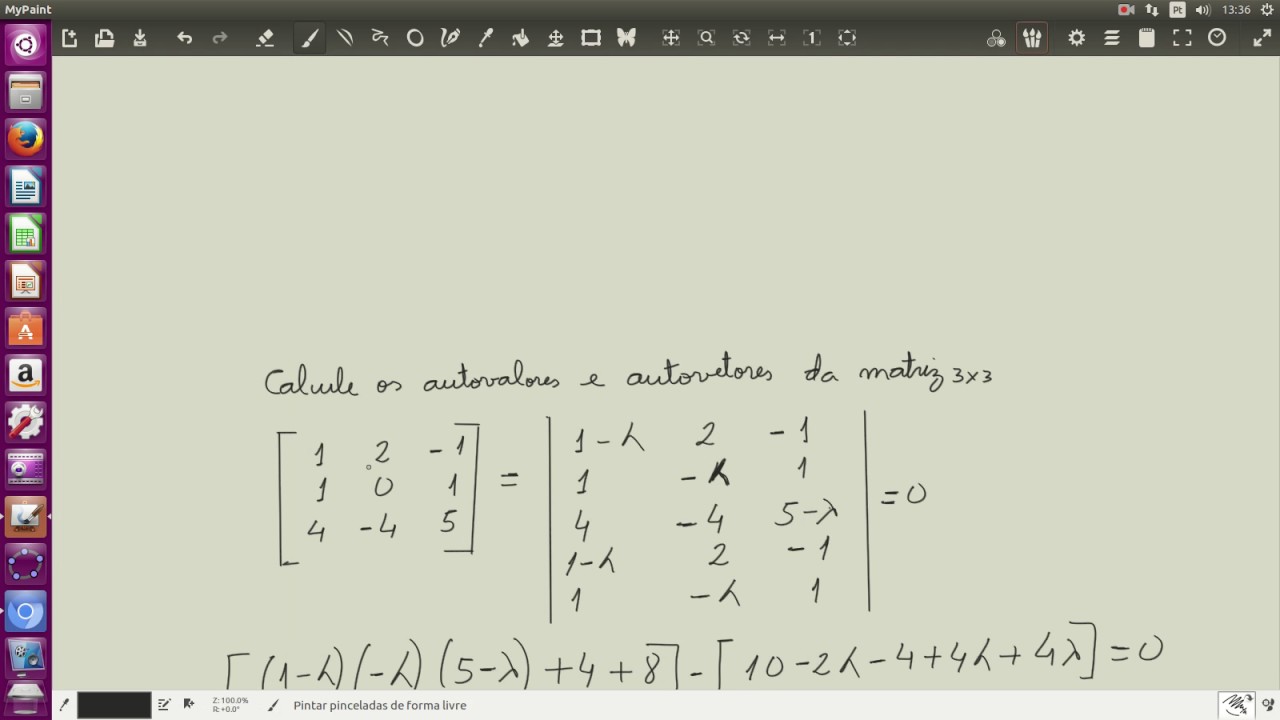 MyPaint
Pt 13:36
Calcule os autovalores e autovetores da matriz 3x3
[1 2 -1; 1 0 1; 4 -4 5] = |1-λ 2 -1; 1 -λ 1; 4 -4 5-λ; 1-λ 2 -1; 1 -λ 1| = 0
[(1-λ)(-λ)(5-λ)+4+8] - [10-2λ-4+4λ+4λ] = 0
Z: 100.0%
R: +0.0°
Pintar pinceladas de forma livre